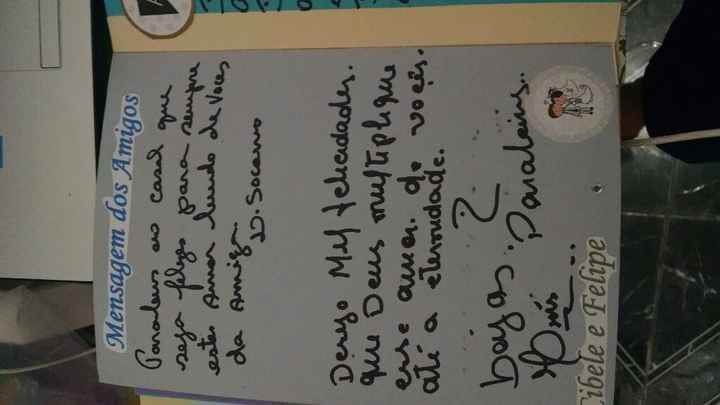 Mensagem dos Amigos
Parabens ao casal que
seja felizes para sempre
este Amor lindo de Voces
da Amiga
D. Socorro
Desejo Mil felicidades.
que Deus multiplique
esse amor. de vocês.
até a eternidade.
Parabéns..
Cibele e Felipe